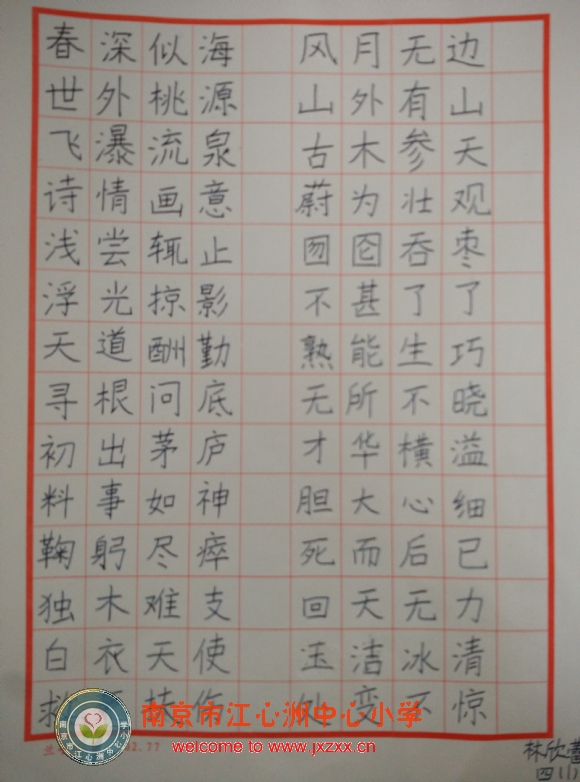 春深似海 风月无边
世外桃源 山外有山
飞瀑流泉 古木参天
诗情画意 蔚为壮观
浅尝辄止 囫囵吞枣
浮光掠影 不甚了了
天道酬勤 熟能生巧
寻根问底 无所不晓
初出茅庐 才华横溢
料事如神 胆大心细
鞠躬尽瘁 死而后已
独木难支 回天无力
白衣天使 玉洁冰清
救扶伤 处变不惊
南京市江心洲中心小学
welcome to www.jxzxx.cn
林欣